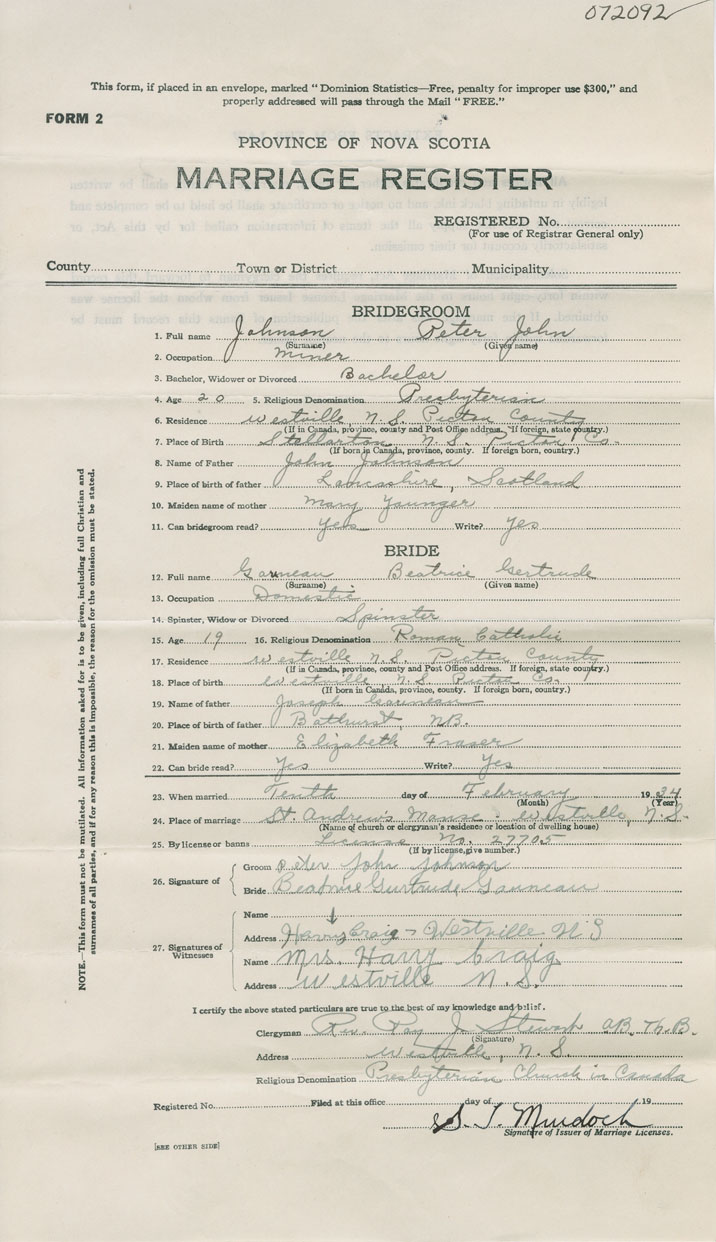 072092
This form, if placed in an envelope, marked "Dominion Statistics—Free, penalty for improper use $300," and
properly addressed will pass through the Mail "FREE."
FORM 2
PROVINCE OF NOVA SCOTIA
MARRIAGE REGISTER
REGISTERED No.
(For use of Registrar General only)
County Town or District Municipality
BRIDEGROOM
1. Full name Johnson Peter John
(Surname) (Given name)
2. Occupation Miner
3. Bachelor, Widower or Divorced Bachelor
4. Age 20 5. Religious Denomination Presbyterian
6. Residence Westville, N.S. Pictou County
(If in Canada, province, county and Post Office address. If foreign, state country.)
7. Place of Birth Stellarton N.S. Pictou Co.
(If born in Canada, province, county. If foreign born, country.)
8. Name of Father John Johnson
9. Place of birth of father Lancashire, Scotland
10. Maiden name of mother Mary Younger
11. Can bridegroom read? Yes Write? Yes
BRIDE
12. Full name Garneau Beatrice Gertrude
(Surname) (Given name)
13. Occupation Domestic
14. Spinster, Widow or Divorced Spinster
15. Age 19 16. Religious Denomination Roman Catholic
17. Residence Westville N.S. Pictou County
(If in Canada, province, county and Post Office address. If foreign, state country.)
18. Place of birth Westville N.S. Pictou Co.
(If born in Canada, province, county. If foreign born, country.)
19. Name of father Joseph Garneau
20. Place of birth of father Bathurst, N.B.
21. Maiden name of mother Elizabeth Fraser
22. Can bride read? Yes Write? Yes
23. When married Tenth day of February 1934
(Month) (Year)
24. Place of marriage St. Andrew's Manse - Westville, N.S.
(Name of church or clergyman's residence or location of dwelling house)
25. By license or banns License No. 27705
(If by license, give number.)
26. Signature of Groom Peter John Johnson
Bride Beatrice Gurtrude Gauneau
27. Signatures of Witnesses
Name
Address Harry Craig - Westville N S
Name Mrs. Harry Craig
Address Westville N.S.
I certify the above stated particulars are true to the best of my knowledge and belief.
Clergyman Rev. Ray J. Stewart AB. Th.B.
(Signature)
Address Westville, N.S.
Religious Denomination Presbyterian Church in Canada
Registered No. Filed at this office day of 19
S. J. Murdoch
Signature of Issuer of Marriage Licenses.
[SEE OTHER SIDE]
NOTE.—This form must not be mutilated. All information asked for is to be given, including full Christian and
surnames of all parties, and if for any reason this is impossible, the reason for the omission must be stated.